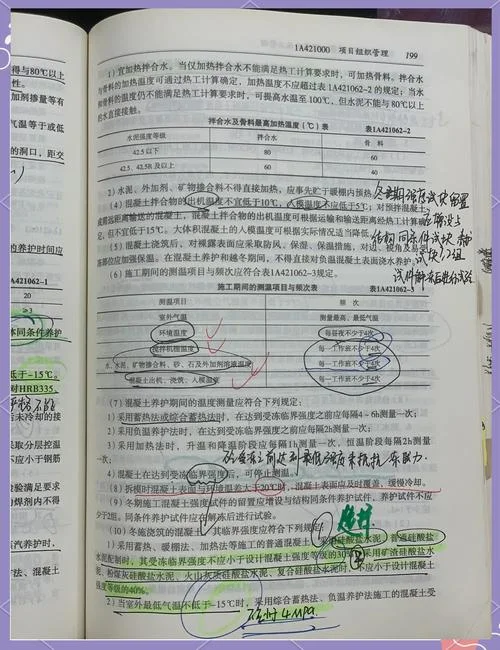 得与80℃以上
加剂掺量等有
气温等于或低
的洞口，距交
的养护时间应
1A421062-1
20
≥3
体同条件养护
低于-15℃。
对HRB335、
与未冷却的接
采取分层控温
应小于钢筋
验满足要求
焊剂内不得
汽养护时，
法、混凝土
1A421000 项目组织管理 199
1）宜加热拌合水。当仅加热拌合水不能满足热工计算要求时，可加热骨料。拌合水
与骨料的加热温度可通过热工计算确定，加热温度不应超过表1A421062-2的规定；当水
和骨料的温度仍不能满足热工计算要求时，可提高水温至100℃，但水泥不能与80℃以上
的水直接接触。
拌合水及骨料最高加热温度（℃）表 表1A421062-2
水泥强度等级 拌合水 骨料
42.5以下 80 60
42.5、42.5R及以上 60 40
2）水泥、外加剂、矿物掺合料不得直接加热，应事先贮于暖棚内预热
（4）混凝土拌合物的出机温度不宜低于10℃，入模温度不应低于5℃；对预拌混凝土
或需远距离输送的混凝土，混凝土拌合物的出机温度可根据运输和输送距离经热工计算
，但不宜低于15℃。大体积混凝土的入模温度可根据实际情况适当降低。
（5）混凝土浇筑后，对裸露表面应采取防风、保湿、保温措施，对边、棱角及易受
部位应加强保温。在混凝土养护和越冬期间，不得直接对负温混凝土表面浇水养护。
（6）施工期间的测温项目与频次应符合表1A421062-3规定。
施工期间的测温项目与频次表 表1A421062-3
测温项目 频次
室外气温 测量最高、最低气温
环境温度 每昼夜不少于4次
搅拌机棚温度 每一工作班不少于4次
水、水泥、矿物掺合料、砂、石及外加剂溶液温度 每一工作班不少于4次
混凝土出机、浇筑、入模温度 每一工作班不少于4次
（7）混凝土养护期间的温度测量应符合下列规定：
1）采用蓄热法或综合蓄热法时，在达到受冻临界强度之前应每隔4~6h测量一次；
2）采用负温养护法时，在达到受冻临界强度之前应每隔2h测量一次；
3）采用加热法时，升温和降温阶段应每隔1h测量一次，恒温阶段每隔2h测量
一次；
4）混凝土在达到受冻临界强度后，可停止测温。
（8）拆模时混凝土表面与环境温差大于20℃时，混凝土表面应及时覆盖，缓慢冷却。
（9）冬期施工混凝土强度试件的留置应增设与结构同条件养护试件，养护试件不应
少于2组。同条件养护试件应在解冻后进行试验。
（10）冬施浇筑的混凝土，其临界强度应符合下列规定：
1）采用蓄热、暖棚法、加热法等施工的普通混凝土，采用硅酸盐水泥、普通硅酸盐
水泥配制时，其受冻临界强度不应小于设计混凝土强度等级的30%；采用矿渣硅酸盐水
泥、粉煤灰硅酸盐水泥、火山灰质硅酸盐水泥、复合硅酸盐水泥时，不应小于设计混凝土
强度等级的40%。
2）当室外最低气温不低于-15℃时，采用综合蓄热法、负温养护法施工的混凝土受
4MPa